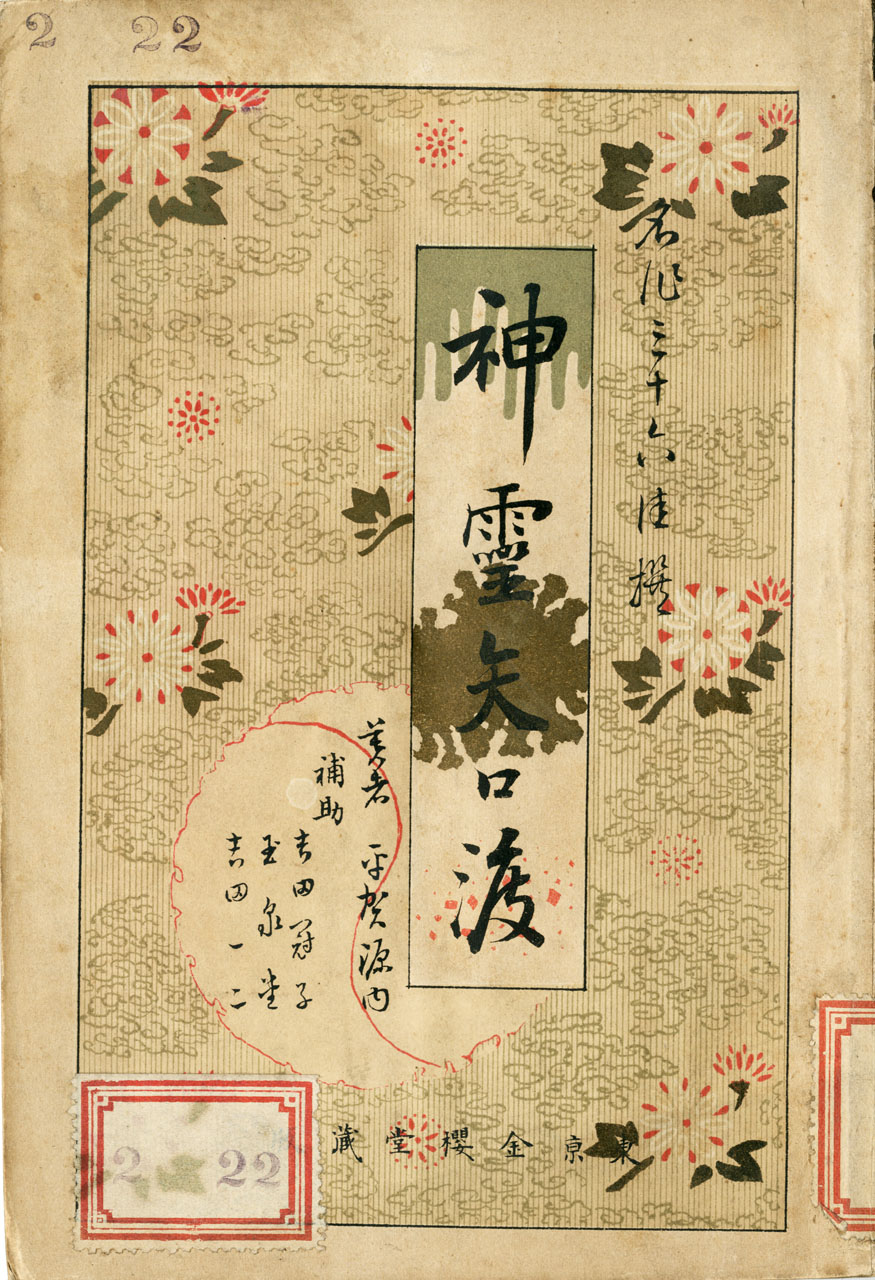 2 22
名作三十六佳撰
神靈矢口渡
著者 平賀源内
補助 吉田冠子
玉泉堂
吉田一二
東京金櫻堂藏
2 22